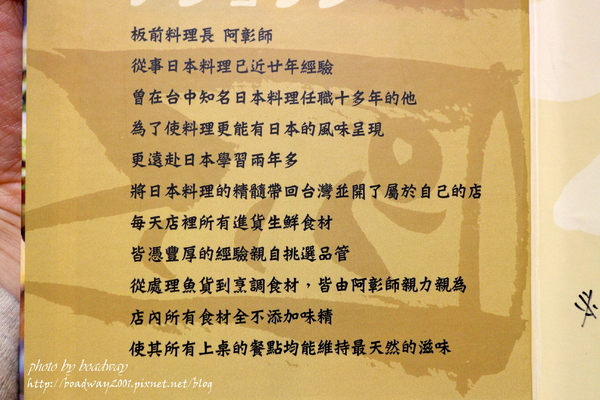 板前料理長 阿彰師
從事日本料理已近廿年經驗
曾在台中知名日本料理任職十多年的他
為了使料理更能有日本的風味呈現
更遠赴日本學習兩年多
將日本料理的精髓帶回台灣並開了屬於自己的店
每天店裡所有進貨生鮮食材
皆憑豐厚的經驗親自挑選品管
從處理魚貨到烹調食材，皆由阿彰師親力親為
店內所有食材全不添加味精
使其所有上桌的餐點均能維持最天然的滋味
photo by boadway
http://boadway2001.pixnet.net/blog